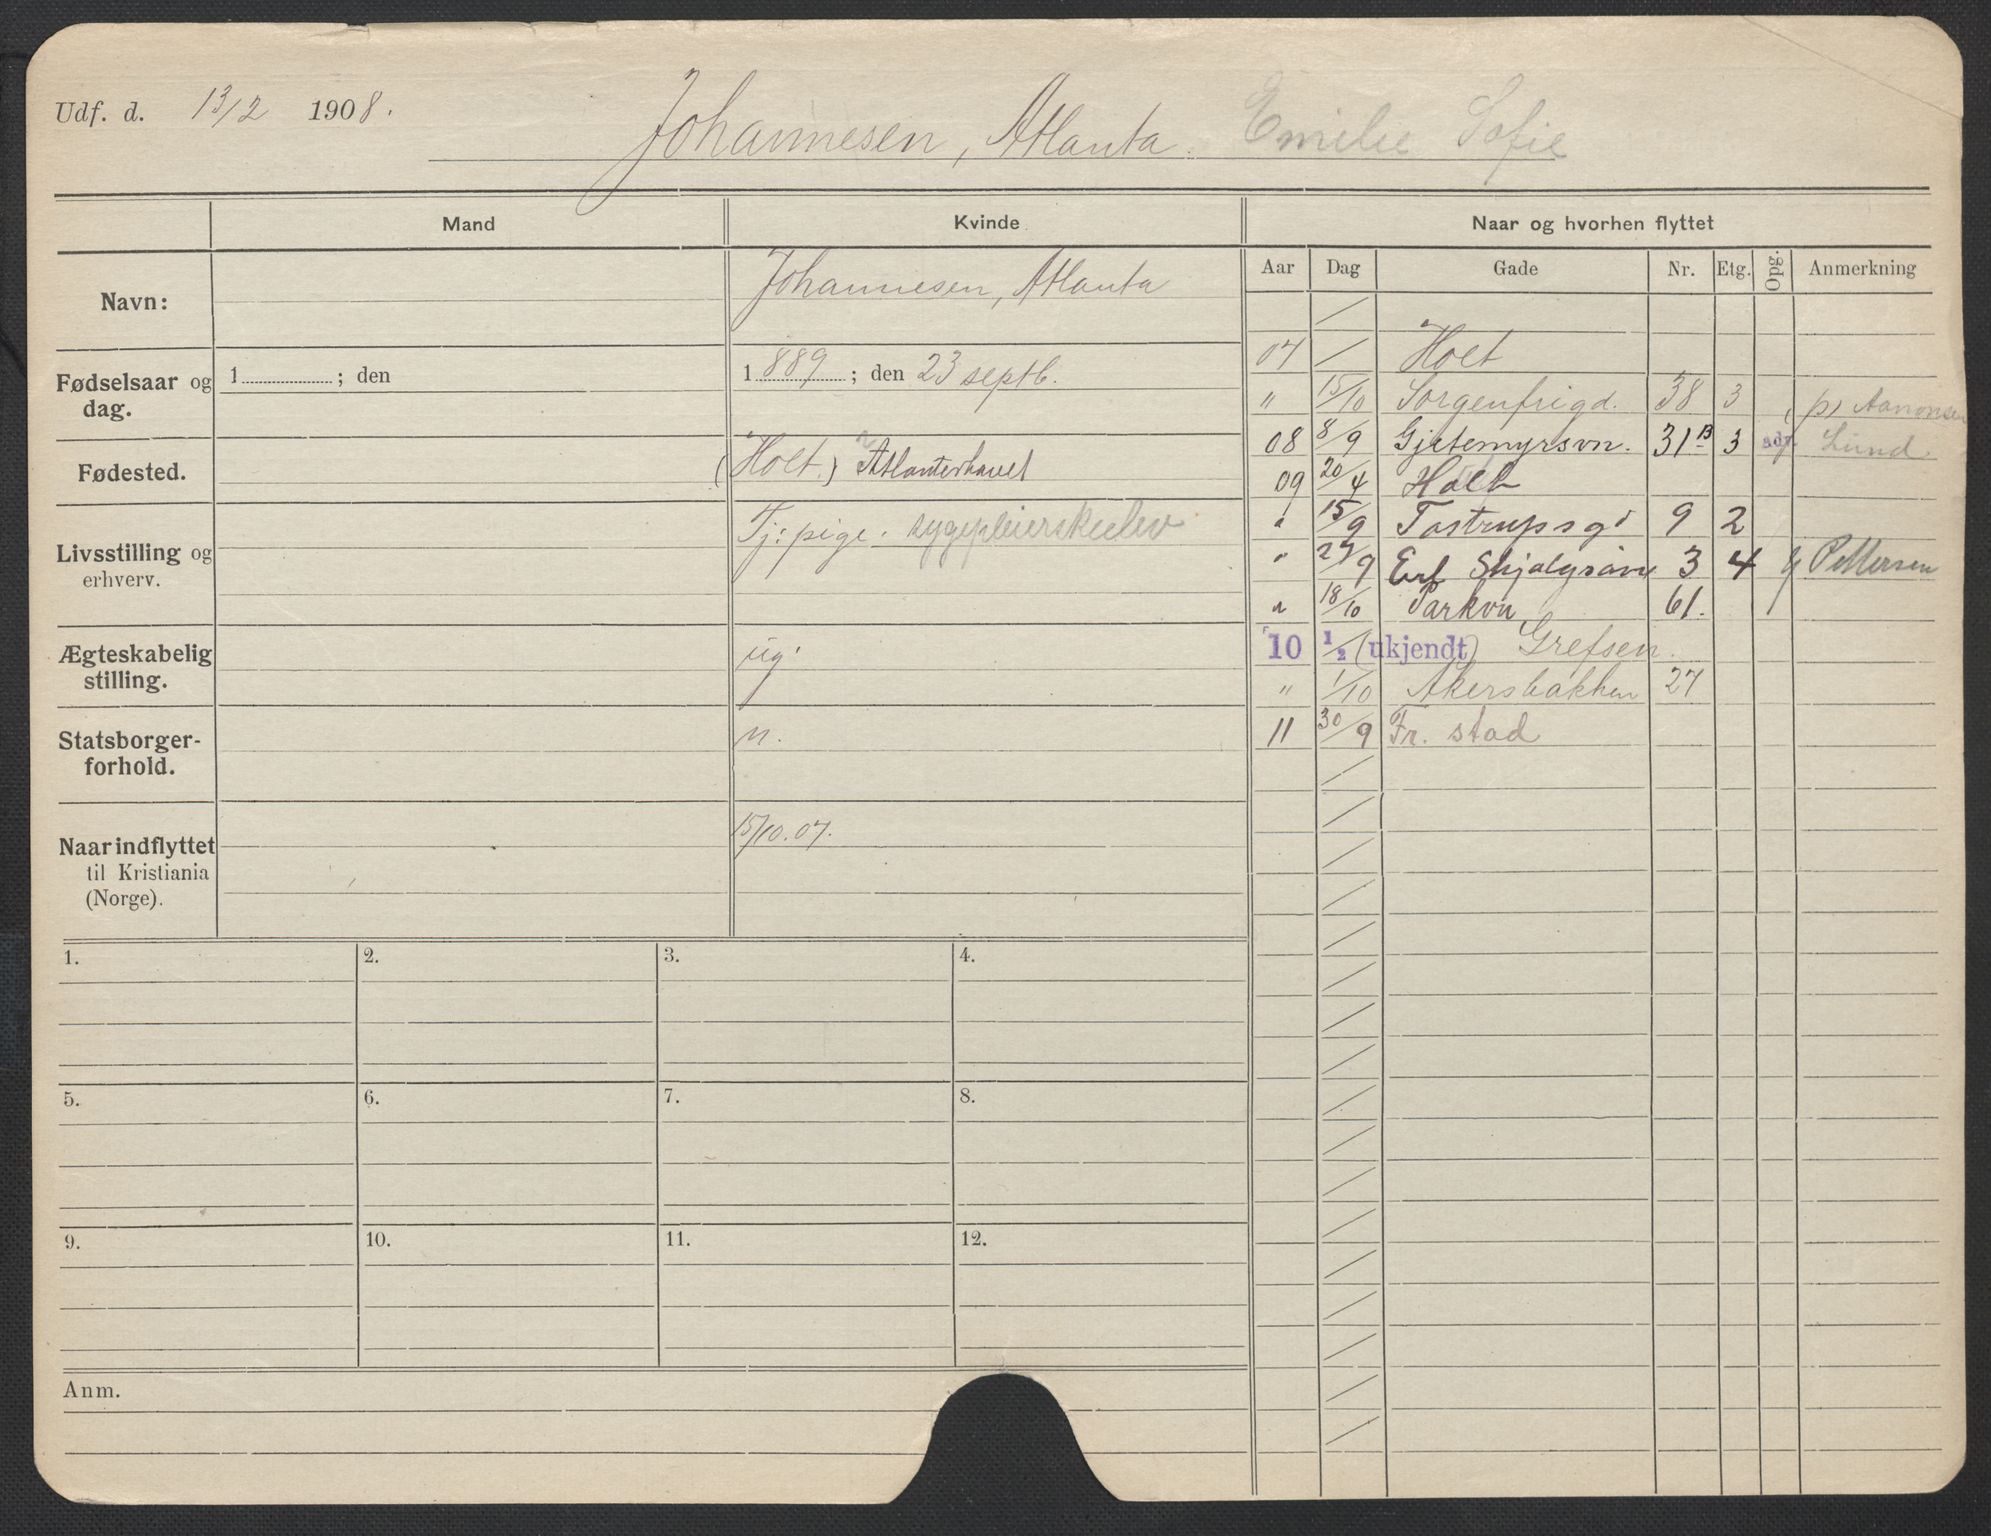 Udf. d. 13/2 1908. Johannesen, Atlanta. Emilie Sofie
Mand Kvinde Naar og hvorhen flyttet
Aar Dag Gade Nr. Etg. Opg. Anmerkning
Navn: Johannesen, Atlanta
Fødselsaar og dag. 1 ; den 1889 ; den 23 septb.
Fødested. (Holt.) Atlanterhavet
Livsstilling og erhverv. Tj: pige. sygepleierskeelev
Ægteskabelig stilling. ug.
Statsborger-forhold. n.
Naar indflyttet til Kristiania (Norge). 15/10.07.
07 / Holt
" 15/10 Sorgenfrigd. 38 3 (p) Aanonsen
08 8/9 Gjetemyrsvn. 31B 3 adr. Lund
09 20/4 Holt
" 15/9 Tostrupsgd 9 2
" 29/9 Erl Skjalgsøns 3 4 Pettersen
" 18/10 Parkvn 61.
10 1/2 (ukjendt) Grefsen.
" 1/10 Akersbakken 27
11 30/9 Fr. stad
1. 2. 3. 4.
5. 6. 7. 8.
9. 10. 11. 12.
Anm.